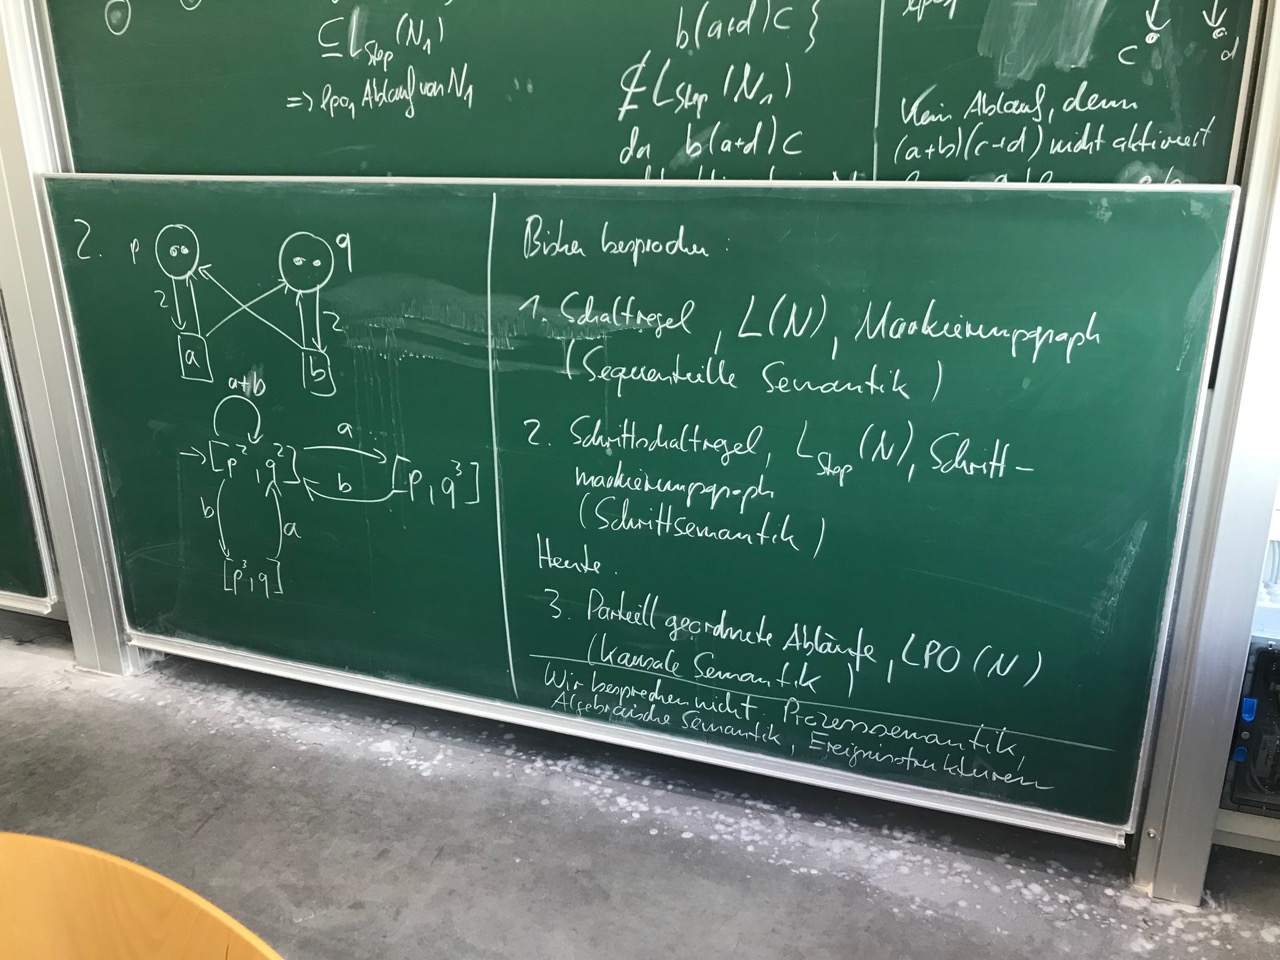 ⊆ L_Step (N₁)
=> lpo₁ Ablauf von N₁
b(a+d)c }
⊄ L_Step (N₁)
da b(a+d)c
c d
Kein Ablauf, denn
(a+b)(c+d) nicht aktiviert
2.
p q
2 2
a b
a+b
→[p²,q²] a [p,q³]
b
b a
[p³,q]
Bisher besprochen:
1. Schaltregel, L(N), Markierungsgraph
(Sequentielle Semantik)
2. Schrittschaltregel, L_Step (N), Schritt-
markierungsgraph
(Schrittsemantik)
Heute:
3. Partiell geordnete Abläufe, LPO(N)
(Kausale Semantik)
Wir besprechen nicht: Prozesssemantik,
Algebraische Semantik, Ereignisstrukturen